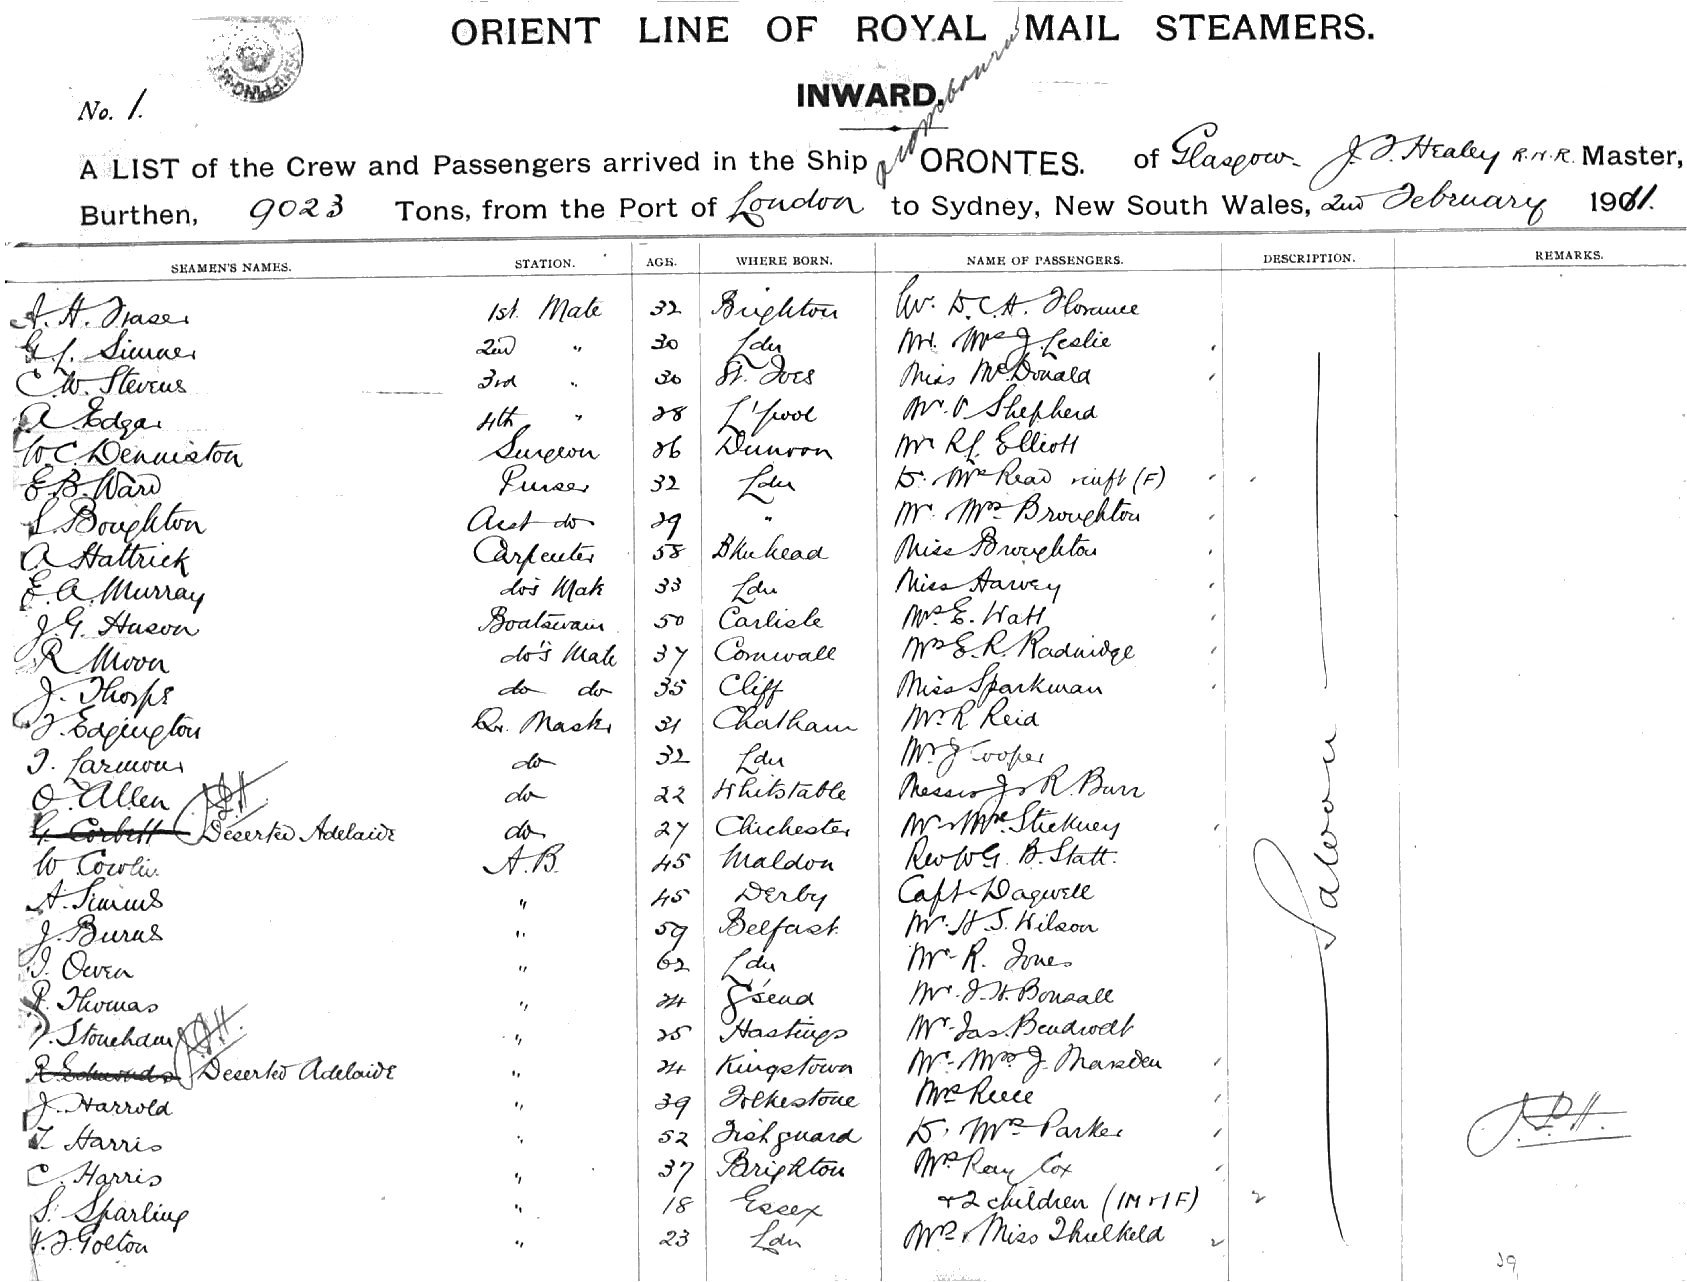 ORIENT LINE OF ROYAL MAIL STEAMERS.
INWARD.
No. 1.
A LIST of the Crew and Passengers arrived in the Ship ORONTES. of Glasgow J. F. Healey R.N.R. Master,
Burthen, 9023 Tons, from the Port of London to Sydney, New South Wales, 2nd February 1911.
SEAMEN'S NAMES. STATION. AGE. WHERE BORN. NAME OF PASSENGERS. DESCRIPTION. REMARKS.
A. H. Fraser 1st Mate 32 Brighton D. C. H. Florance
G. L. 2nd " 30 Ldn Mr. Mrs J. Leslie
C. W. Stevens 3rd " 30 St. Ives Miss McDonald
A Edgar 4th " 28 L'pool Mr. V Shepherd
W C. Denniston Surgeon 26 Dunoon Mr R. L. Elliott
E. B. Ward Purser 32 Ldn Dr. Mrs Read inft (F)
S. Boughton Asst do 29 " Mr. Mrs Broughton
A Hattrick Carpenter 58 B'kenhead Miss Broughton
E. A. Murray do's Mate 33 Ldn Miss Harvey
J. G. Huson Boatswain 50 Carlisle Mrs E. Watt
R Moon do's Mate 37 Cornwall Mrs E. R. Radnidge
J. Thorpe do do 35 Cliff Miss Sparkman
F. Edgington Qr. Master 31 Chatham Mr. R Reid
J. Larmour do 32 Ldn Mr J Cooper
O. Allen do 22 Whitstable Messrs J & R. Burr
G. Corbett Deserted Adelaide do 27 Chichester Mr Mrs Stickney
W Cowlin A.B. 45 Maldon Rev W G. B. Statt.
A. Simms " 45 Derby Capt Dagwell
J. Burns " 59 Belfast Mr. H. S. Wilson
J. Owen " 62 Ldn Mr. R. Jones
P. Thomas " 24 G'send Mr. J. H. Bonsall
F. Stoneham " 25 Hastings Mr. Jas.
R. Edmonds Deserted Adelaide " 24 Kingstown Mr. Mrs J. Marsden
J. Harrold " 39 Folkestone Mrs Reece
T Harris " 52 Fishguard Dr. Mrs Parker
C. Harris " 37 Brighton Mrs Ray Cox
S. Sparling " 18 Essex + 2 children (1M + 1F)
H. J. Golton " 23 Ldn Mrs & Miss Thulkeld
Saloon
J.F.H.